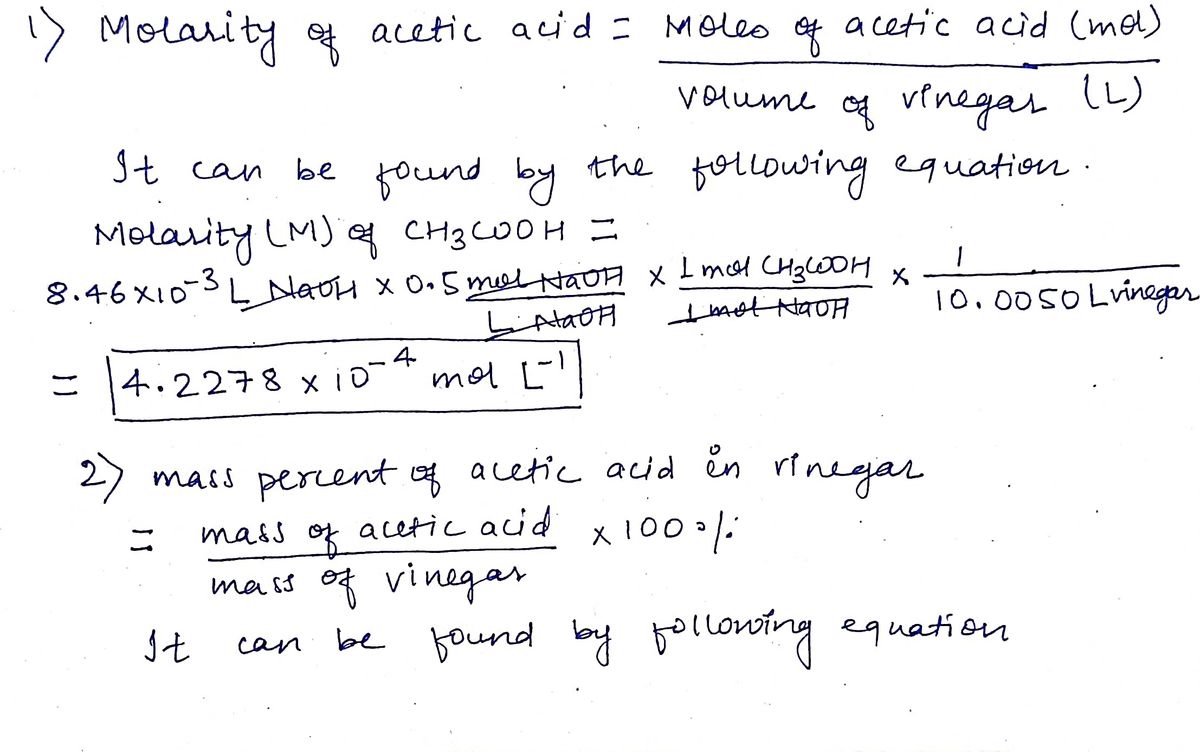 1) Molarity of acetic acid = Moles of acetic acid (mol)
volume of vinegar (L)
It can be found by the following equation.
Molarity (M) of CH3COOH =
8.46 x 10-3 L NaOH x 0.5 mol NaOH / L NaOH x 1 mol CH3COOH / 1 mol NaOH x 1 / 10.0050 L vinegar
= 4.2278 x 10-4 mol L-1
2) mass percent of acetic acid in vinegar
= mass of acetic acid x 100 %
mass of vinegar
It can be found by following equation